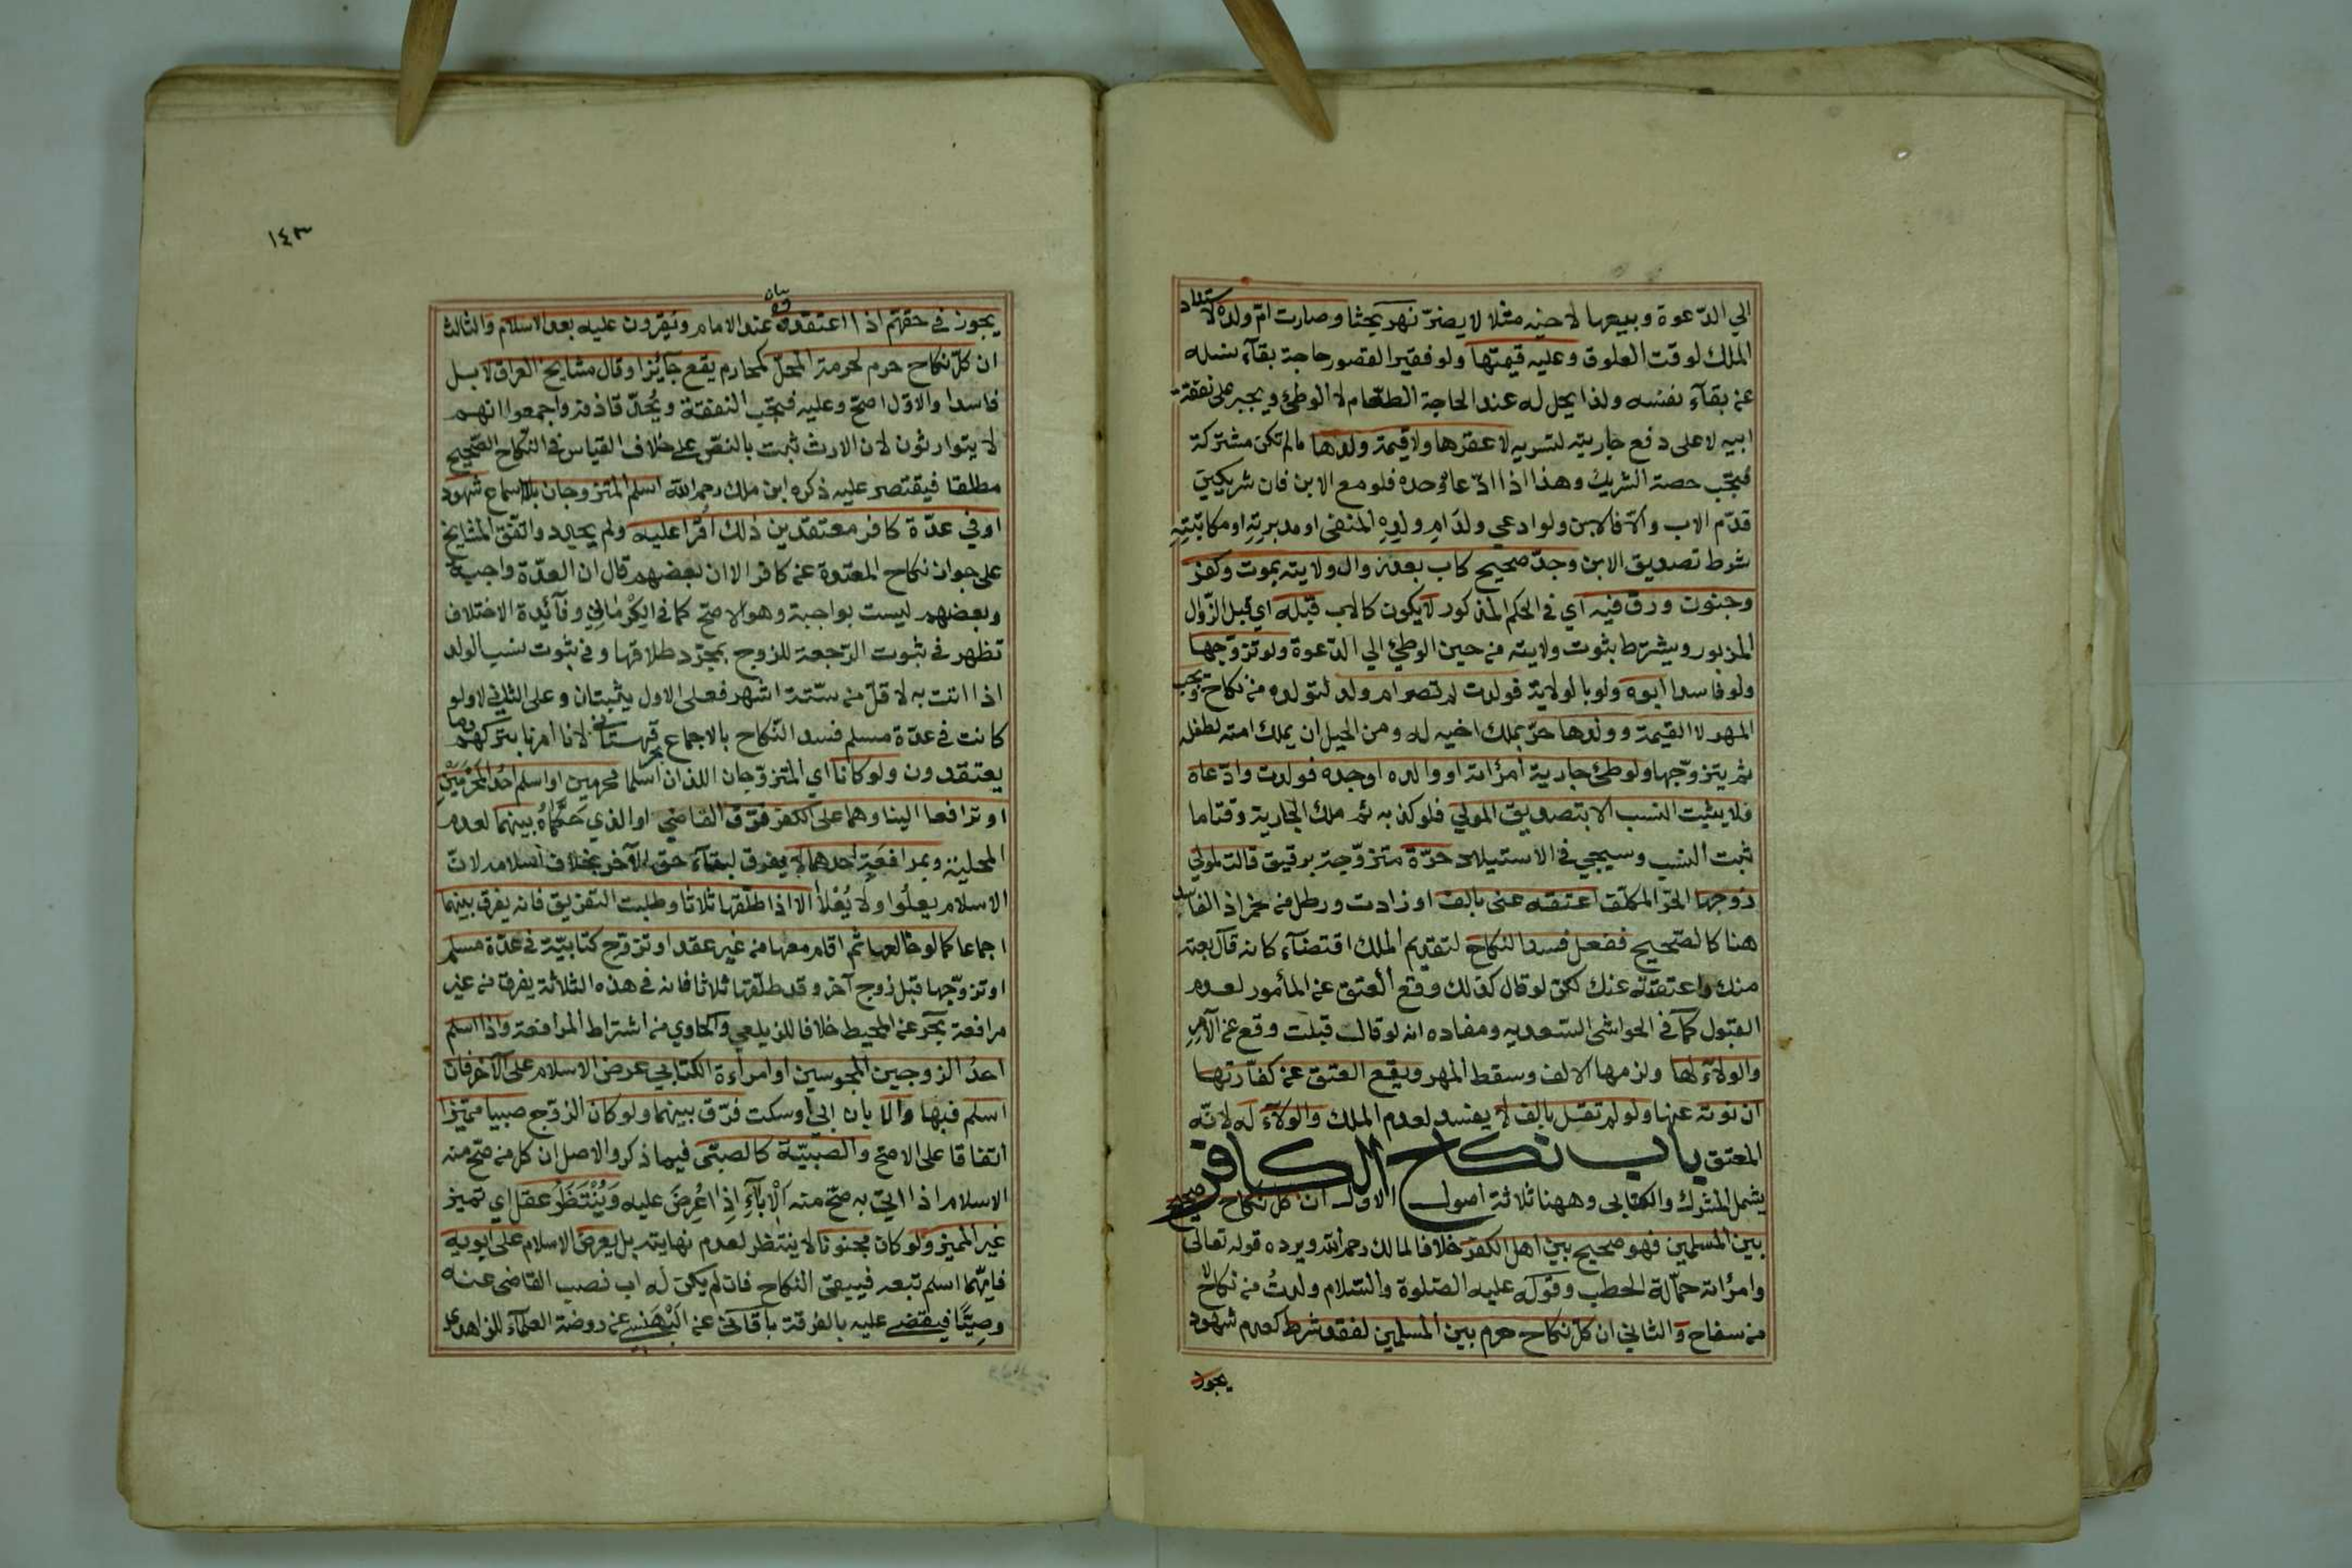 الي الدعوة وبيعها لاخيه مثلا لا يضر نهر بحثا وصارت ام ولده لاستناد
الملك لوقت العلوق وعليه قيمتها ولو فقيرا لقصور حاجة بقآء نسله
عن بقآء نفسه ولذا يحل له عند الحاجة الطعام لا الوطئ ويجبر على نفقة
ابيه لا على دفع جاريته لتسريه لا عقرها ولا قيمة ولدها ما لم تكن مشتركة
فتجب حصة الشريك وهذا اذا ادعاه وحده فلو مع الابن فان شريكين
قدم الاب والا فالابن ولو ادعي ولد ام ولده المنفى او مدبرته او مكاتبته
شرط تصديق الابن وجد صحيح كاب بعد زوال ولايته بموت وكفر
وجنون ورق فيه اي في الحكم المذكور لا يكون كالاب قبله اي قبل الزوال
المزبور ويشترط ثبوت ولايته من حين الوطئ الي الدعوة ولو تزوجها
ولو فاسدا ابوه ولو بالولاية فولدت لم تصر ام ولد لتولده من نكاح ويجب
المهر لا القيمة وولدها حر بملك اخيه له ومن الحيل ان يملك امته لطفله
ثم يتزوجها ولو وطئ جارية امرأته او والده او جده فولدت وادعاه
فلا يثبت النسب الا بتصديق المولي فلو كذبه ثم ملك الجارية وقتا ما
ثبت النسب وسيجي في الاستيلاد حرة متزوجة برقيق قالت لمولي
زوجها الحر المكلف اعتقه عني بالف او زادت ورطل من خمر اذ الفاسد
هنا كالصحيح ففعل فسد النكاح لتقدم الملك اقتضآء كانه قال بعته
منك واعتقته عنك لكن لو قال كذلك وقع العتق عن المأمور لعدم
القبول كما في الحواشي السعديه ومفاده انه لو قال قبلت وقع عن الآمر
والولآء لها ولزمها الالف وسقط المهر ويقع العتق عن كفارتها
ان نوته عنها ولو لم تقل بالف لا يفسد لعدم الملك والولآء له لانه
المعتق باب نكاح الكافر
يشمل المشرك والكتابي وههنا ثلاثة اصول الاول ان كل نكاح صحيح
بين المسلمين فهو صحيح بين اهل الكفر خلافا لمالك رحمه الله ويرده قوله تعالى
وامرأته حمالة الحطب وقوله عليه الصلوة والسلام ولدت من نكاح لا
من سفاح والثاني ان كل نكاح حرم بين المسلمين لفقد شرط كعدم شهود
يجوز
١٤٣
يجوز في حقهم اذا اعتقدوه عند الامام ويقرون عليه بعد الاسلام والثالث
ان كل نكاح حرم لحرمة المحل كمحارم يقع جائزا وقال مشايخ العراق لا بل
فاسدا والاول اصح وعليه فتجب النفقة ويحد قاذفه واجمعوا انهم
لا يتوارثون لان الارث ثبت بالنص على خلاف القياس في النكاح الصحيح
مطلقا فيقتصر عليه ذكره ابن ملك رحمه الله اسلم المتزوجان بلا سماع شهود
او في عدة كافر معتقدين ذلك اقرا عليه ولم يجدد واتفق المشايخ
على جواز نكاح المعتدة عن كافر الا ان بعضهم قال ان العدة واجبة
وبعضهم ليست بواجبة وهو الاصح كما في الكرماني وفآئدة الاختلاف
تظهر في ثبوت الرجعة للزوج بمجرد طلاقها وفي ثبوت نسب الولد
اذا اتت به لاقل من ستة اشهر فعلى الاول يثبتان وعلى الثاني لا ولو
كانت في عدة مسلم فسد النكاح بالاجماع قهستاني لانا امرنا بتركهم وما
يعتقدون ولو كانا اي المتزوجان اللذان اسلما محرمين او اسلم احد المحرمين
او ترافعا الينا وهما على الكفر فرق القاضي او الذي حكماه بينهما لعدم
المحلية وبمرافعة احدهما لا يفرق لبقآء حق الآخر بخلاف اسلامه لان
الاسلام يعلو ولا يعلا الا اذا طلقها ثلاثا وطلبت التفريق فانه يفرق بينهما
اجماعا كما لو خالعها ثم اقام معها من غير عقد او تزوج كتابية في عدة مسلم
او تزوجها قبل زوج آخر وقد طلقها ثلاثا فانه في هذه الثلاثة يفرق من غير
مرافعة بحر عن المحيط خلافا للزيلعي والحاوي من اشتراط المرافعة واذا اسلم
احد الزوجين المجوسين او امراءة الكتابي عرض الاسلام على الآخر فان
اسلم فبها والا بان ابي او سكت فرق بينهما ولو كان الزوج صبيا مميزا
اتفاقا على الاصح والصبية كالصبي فيما ذكر والاصل ان كل من صح منه
الاسلام اذا اتي به صح منه الابآء اذا عرض عليه وينتظر عقل اي تميز
غير المميز ولو كان مجنونا لا ينتظر لعدم نهايته بل يعرض الاسلام على ابويه
فايهما اسلم تبعه فيبقى النكاح فان لم يكن له اب نصب القاضي عنه
وصيا فيقضي عليه بالفرقة باقاني عن البهنسي عن روضة العلمآء للزاهدي